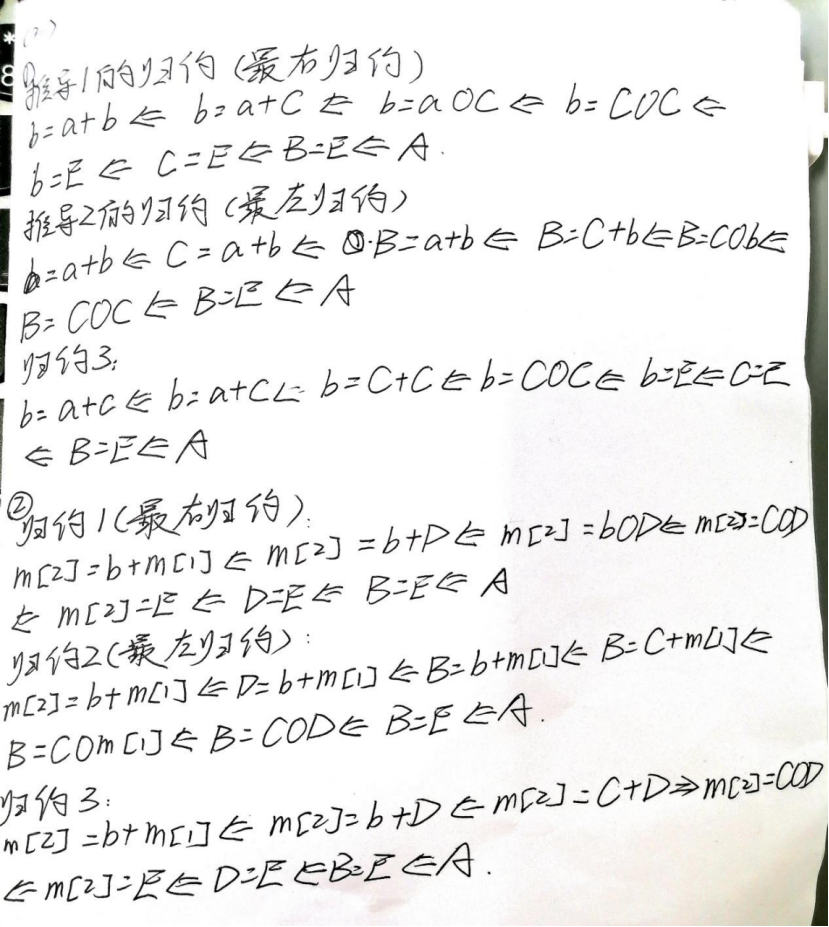 (2)
①推导1的归约(最右归约)
b=a+b ⇐ b=a+C ⇐ b=aOC ⇐ b=COC ⇐
b=E ⇐ C=E ⇐ B=E ⇐ A.
推导2的归约(最左归约)
b=a+b ⇐ C=a+b ⇐ B=a+b ⇐ B=C+b ⇐ B=COb ⇐
B=COC ⇐ B=E ⇐ A
归约3:
b=a+c ⇐ b=a+C ⇐ b=C+C ⇐ b=COC ⇐ b=E ⇐ C=E
⇐ B=E ⇐ A
②归约1(最右归约):
m[2]=b+m[1] ⇐ m[2]=b+D ⇐ m[2]=bOD ⇐ m[2]=COD
⇐ m[2]=E ⇐ D=E ⇐ B=E ⇐ A
归约2(最左归约):
m[2]=b+m[1] ⇐ D=b+m[1] ⇐ B=b+m[1] ⇐ B=C+m[1] ⇐
B=COm[1] ⇐ B=COD ⇐ B=E ⇐ A.
归约3:
m[2]=b+m[1] ⇐ m[2]=b+D ⇐ m[2]=C+D ⇒ m[2]=COD
⇐ m[2]=E ⇐ D=E ⇐ B=E ⇐ A.